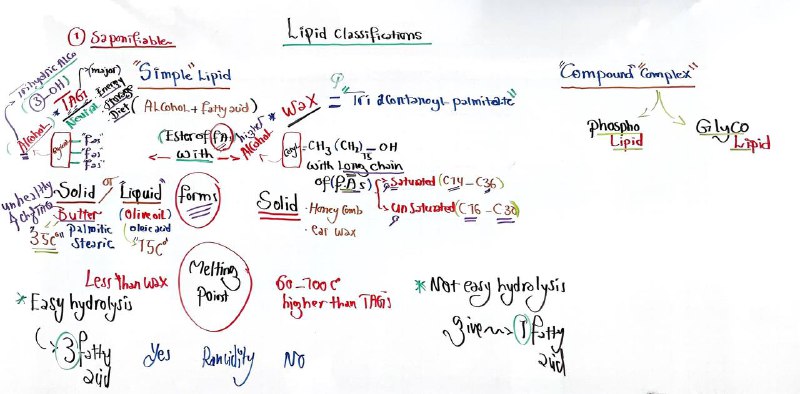 Lipid Classifications
① Saponifiable
trihydric Alco
(3-OH)
TAGs
(major)
Neutral
Energy
Storage
Diet
"Simple" Lipid
(Alcohol + fatty acid)
Alcohol
"Fas"
"Fas"
"Fas"
(Ester of FAs)
with
higher
Alcohol
* Wax
= "Tri acontanoyl-palmitate"
CH3 (CH2)15 - OH
with Long chain
of (F.As)
Saturated (C14 - C36)
Unsaturated (C16 - C30)
"Compound" "Complex"
phospho
Lipid
Glyco
Lipid
unhealthy
Solid or Liquid
forms
Butter
(Olive oil)
35c°
palmitic
Stearic
oleic acid
"15c°"
Solid
. Honey Comb
. Ear wax
Less than wax
Melting
Point
60-70c°
higher than TAGs
* Easy hydrolysis
3 fatty
acid
* Not easy hydrolysis
gives 1 fatty
acid
Yes Rancidity No